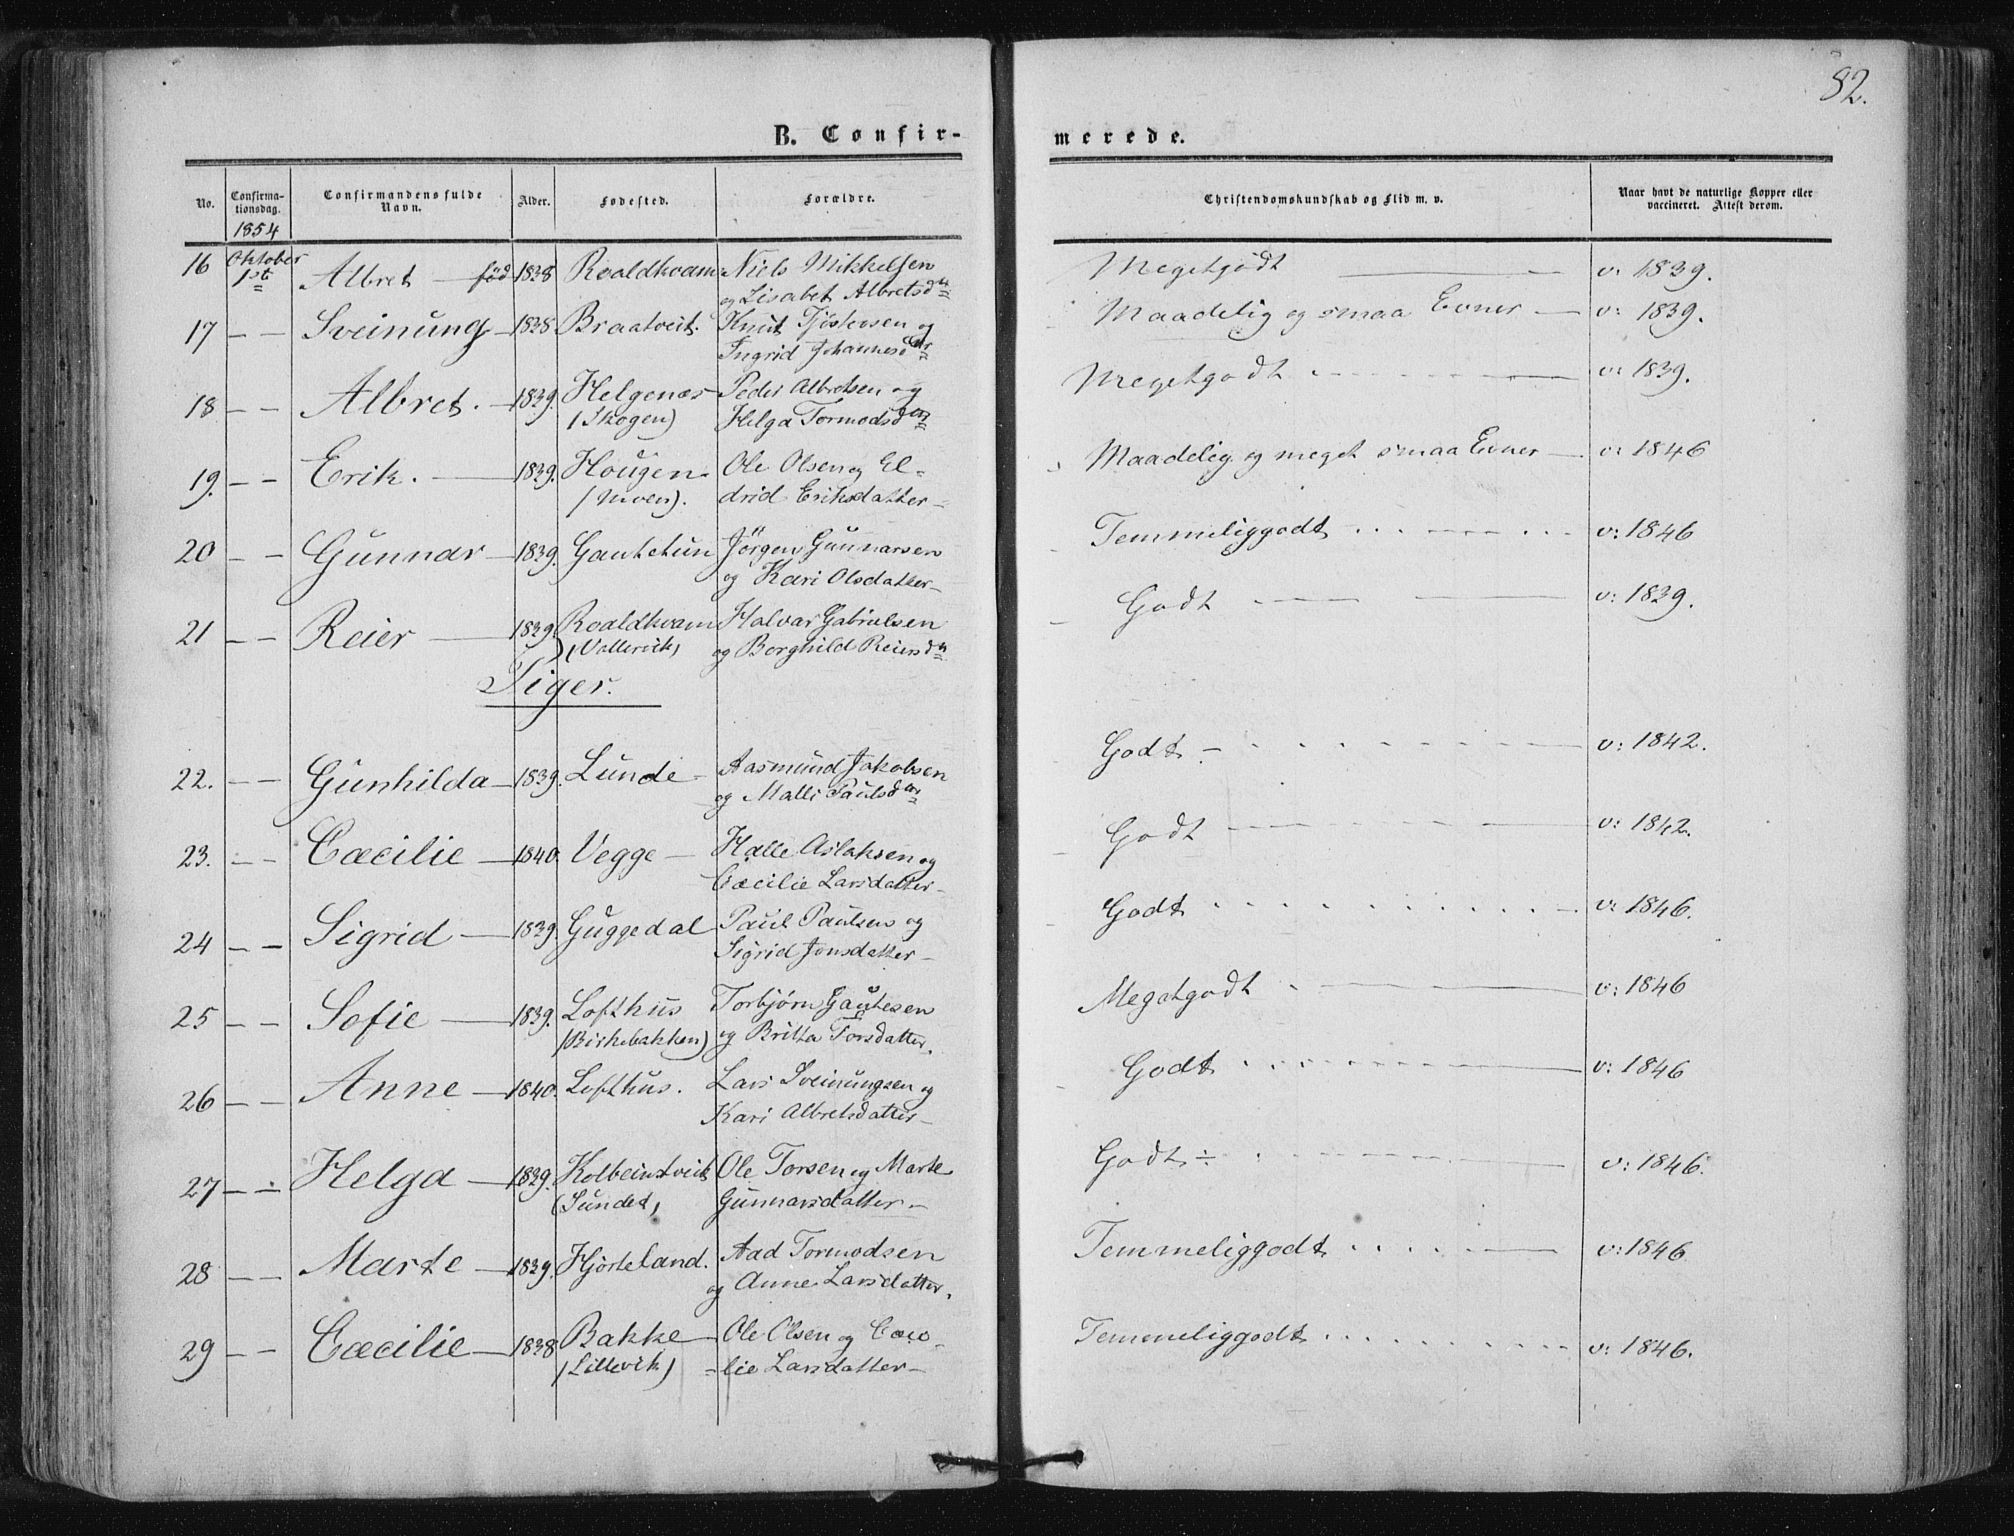 82.
B. Confir-
merede.
No.
Confirma-
tionsdag.
Confirmandens fulde
Navn.
Alder.
Fødested.
Forældre.
Christendomskundskab og Flid m. v.
Naar havt de naturlige Kopper eller
vaccineret. Attest derom.
1854
16 Oktober 1ste Albret — fød 1838 Roaldkvam Niels Mikkelsen
og Lisabet Albretsdtr
Megetgodt v: 1839.
17 — — Sveinung — 1838 Braatveit. Knut Tjøstensen og
Ingrid Johannesdtr
Maadelig og smaa Evner — v: 1839.
18 — — Albret. — 1839. Helgenæs Peder Albretsen og
(Skogen) Helga Tormodsdtr
Megetgodt v: 1839.
19. — — Erik. — 1839. Hougen Ole Olsen og El-
(Moen). drid Eriksdatter
Maadelig og meget smaa Evner — v: 1846
20 — — Gunnar — 1839. Gautetun Jörgen Gunnarsen
og Kari Olsdatter
Temmeliggodt v: 1846
21 — — Reier — 1839. Roaldkvam Halvar Gabrielsen
(Vallevik) og Borghild Reiersdtr
Godt v: 1839.
Piger.
22. — — Gunhilda — 1839. Lunde — Aasmund Jakobsen
og Malli Paulsdtr
Godt v: 1842.
23. — — Cæcilie — 1840. Vegge — Halle Aslaksen og
Cæcilie Larsdatter
Godt v: 1842.
24 — — Sigrid — 1839. Guggedal Paul Paulsen og
Sigrid Jonsdatter
Godt v: 1846.
25 — — Sofie — 1839. Lofthus Torbjørn Gautesen
(Birkebakken) og Britta Torsdatter.
Megetgodt v: 1846
26 — — Anne — 1840. Lofthus. Lars Sveinungsen og
Kari Albretsdatter
Godt v: 1846
27 — — Helga — 1839. Kolbeintveit Ole Torsen og Marte
(Sundet) Gunnarsdatter
Godt v: 1846.
28 — — Marte — 1839. Hjorteland. Aad Tormodsen
og Anne Larsdatter.
Temmeliggodt v: 1846
29 — — Cæcilie — 1838 Bakke Ole Olsen og Cæci-
(Lillevik) -lie Larsdatter
Temmeliggodt v: 1846.